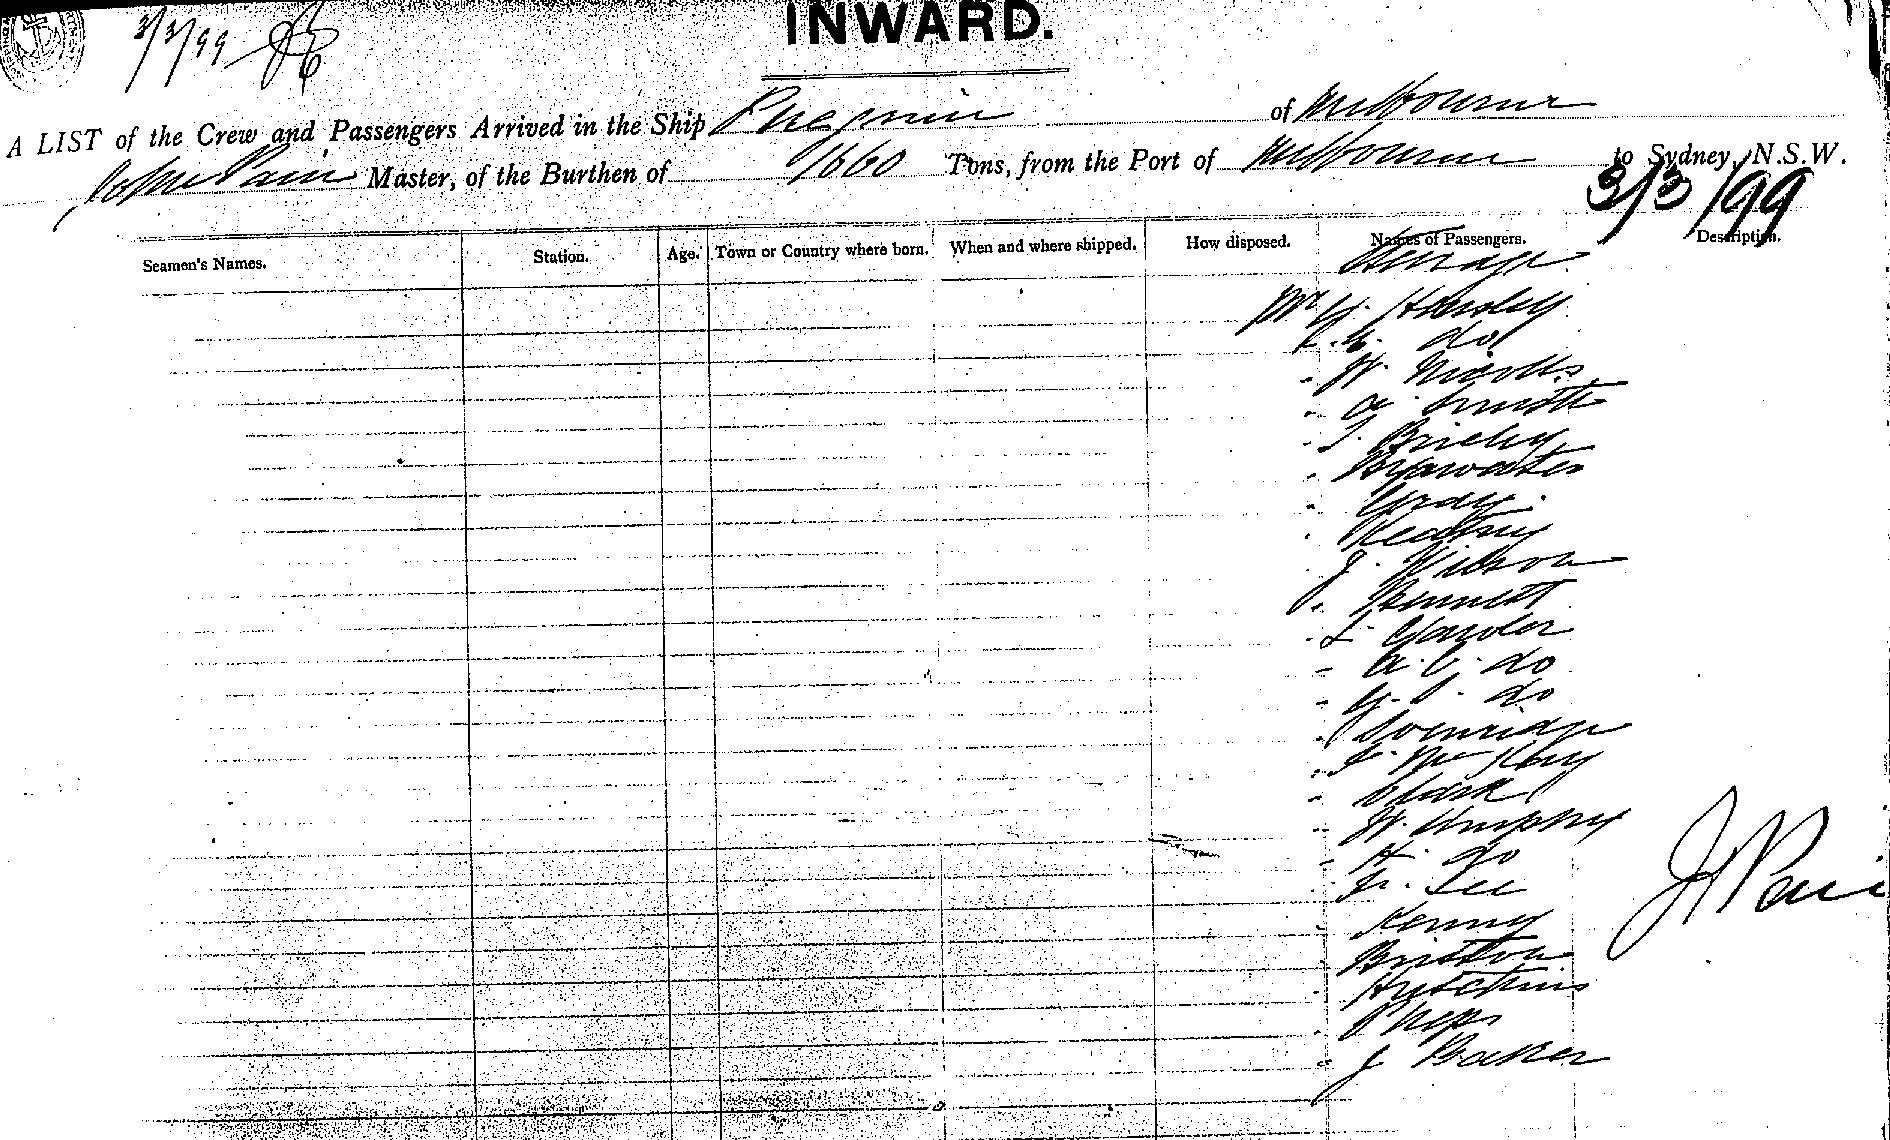 3/3/99
INWARD.
A LIST of the Crew and Passengers Arrived in the Ship of Melbourne
John Pain Master, of the Burthen of 1660 Tons, from the Port of Melbourne to Sydney, N.S.W.
3/3/99
Seamen's Names. Station. Age. Town or Country where born. When and where shipped. How disposed. Names of Passengers. Description.
Steerage
Mr G. Handley
" G. do
" W. Nicolls
" A. Smith
" T. Brieley
" Bywater
" Gray
" Keating
" J. Wilson
" Bennett
" L. Gander
" A. C. do
" G. S. do
"
" F. McKay
" Clark
" W. Umphry
" H. do
" Fr. Lee
" Kenny
" Britton
" Hutchins
" Pheps
" J Baker
J Pain